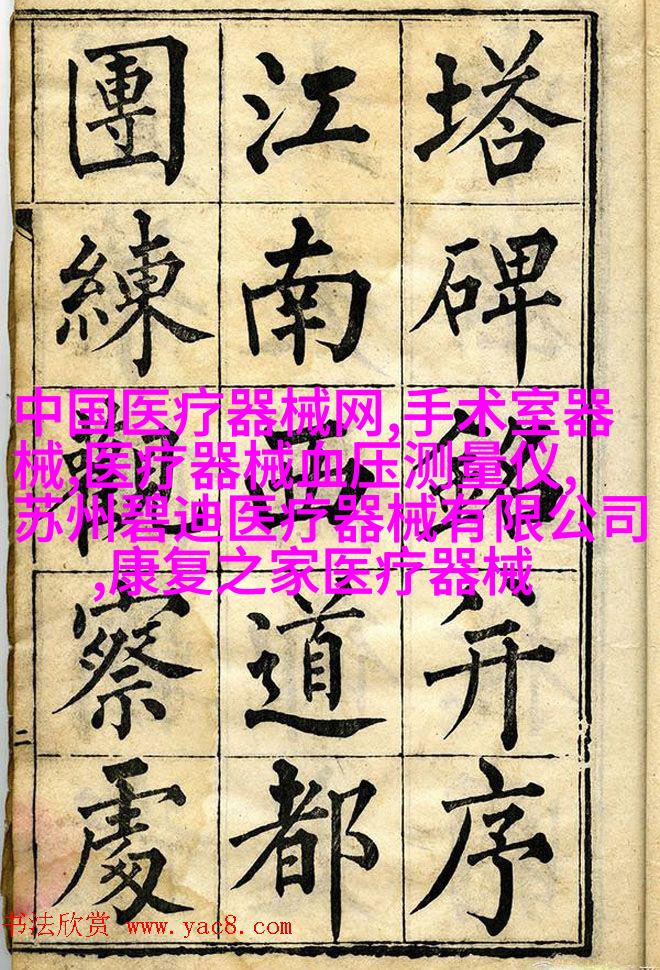 塔碑銘并序
江南西道都
團練觀察處
二
中国医疗器械网,手术室器
械,医疗器械血压测量仪,
苏州碧迪医疗器械有限公司
,康复之家医疗器械
书法欣赏 www.yac8.com